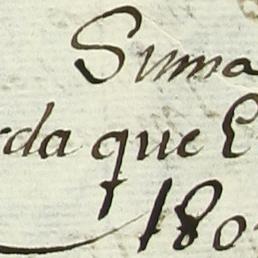 Suma
rda que E
180